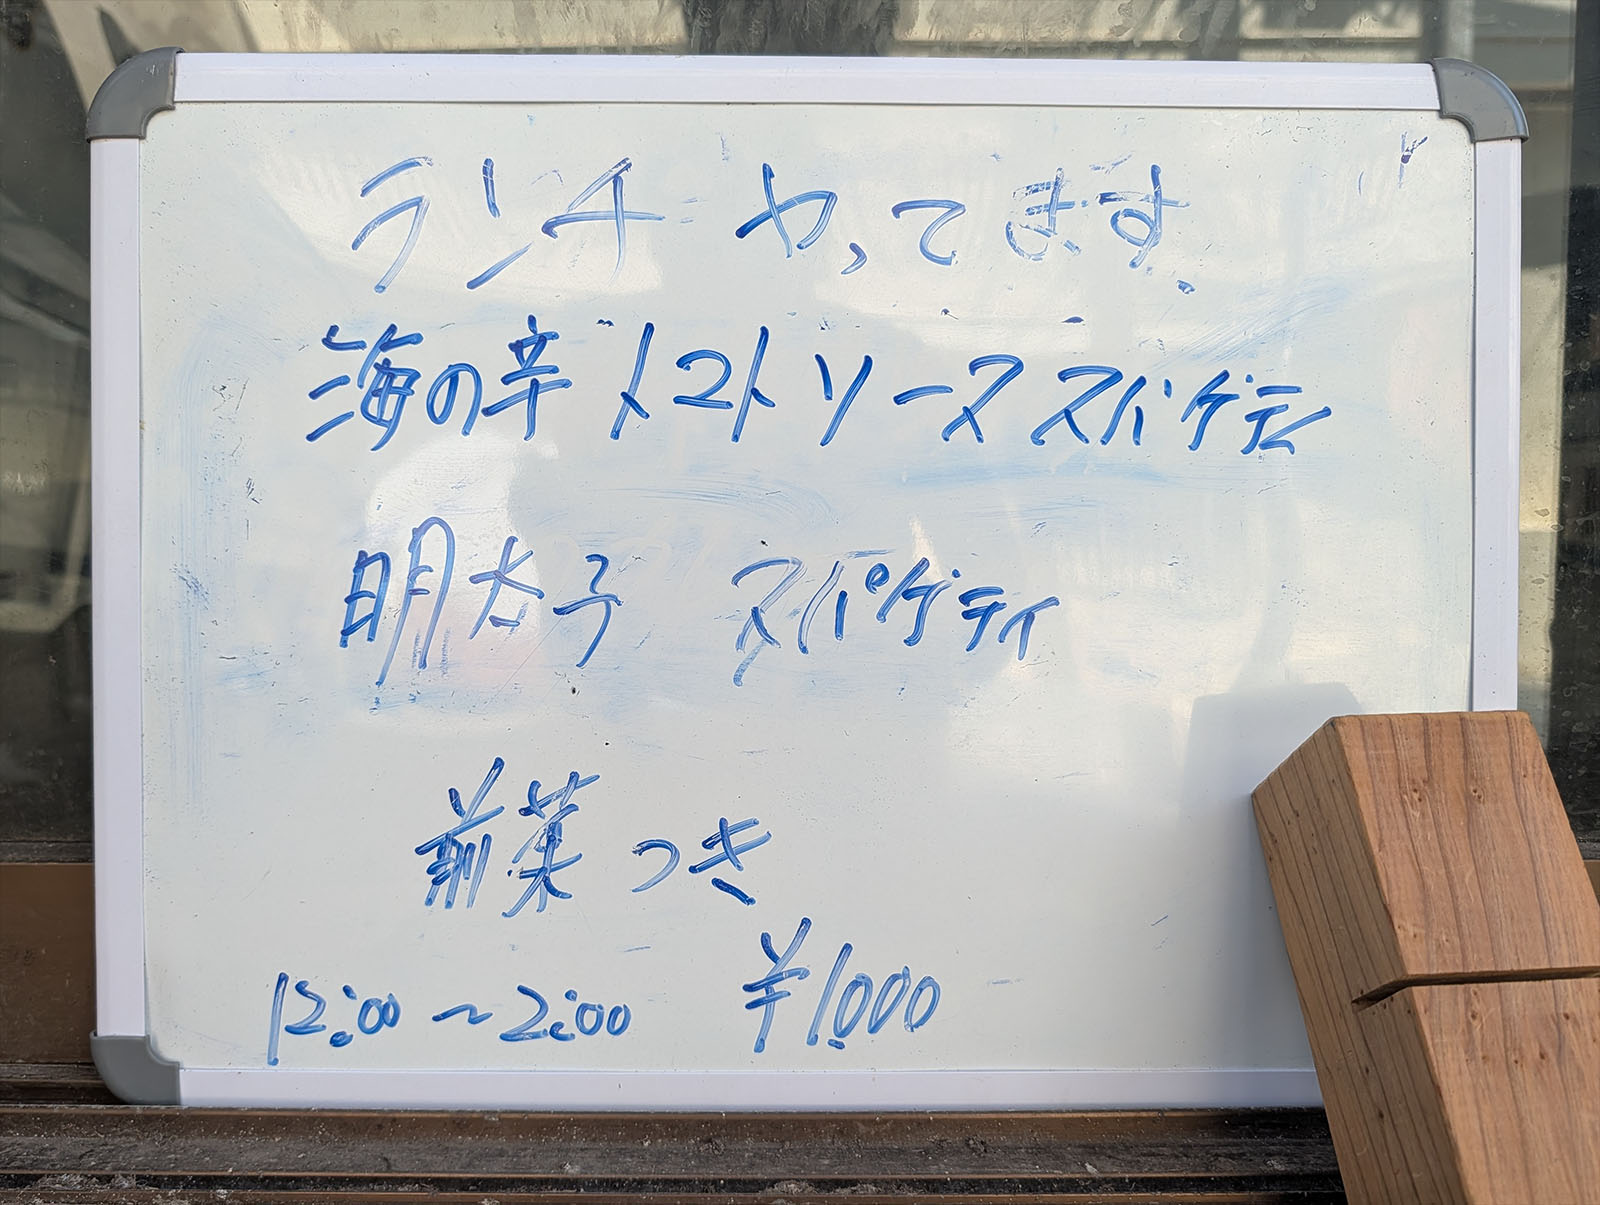 ランチやってます
海の辛トマトソーススパゲティ
明太子 スパゲティ
前菜つき
¥1,000
12:00〜2:00